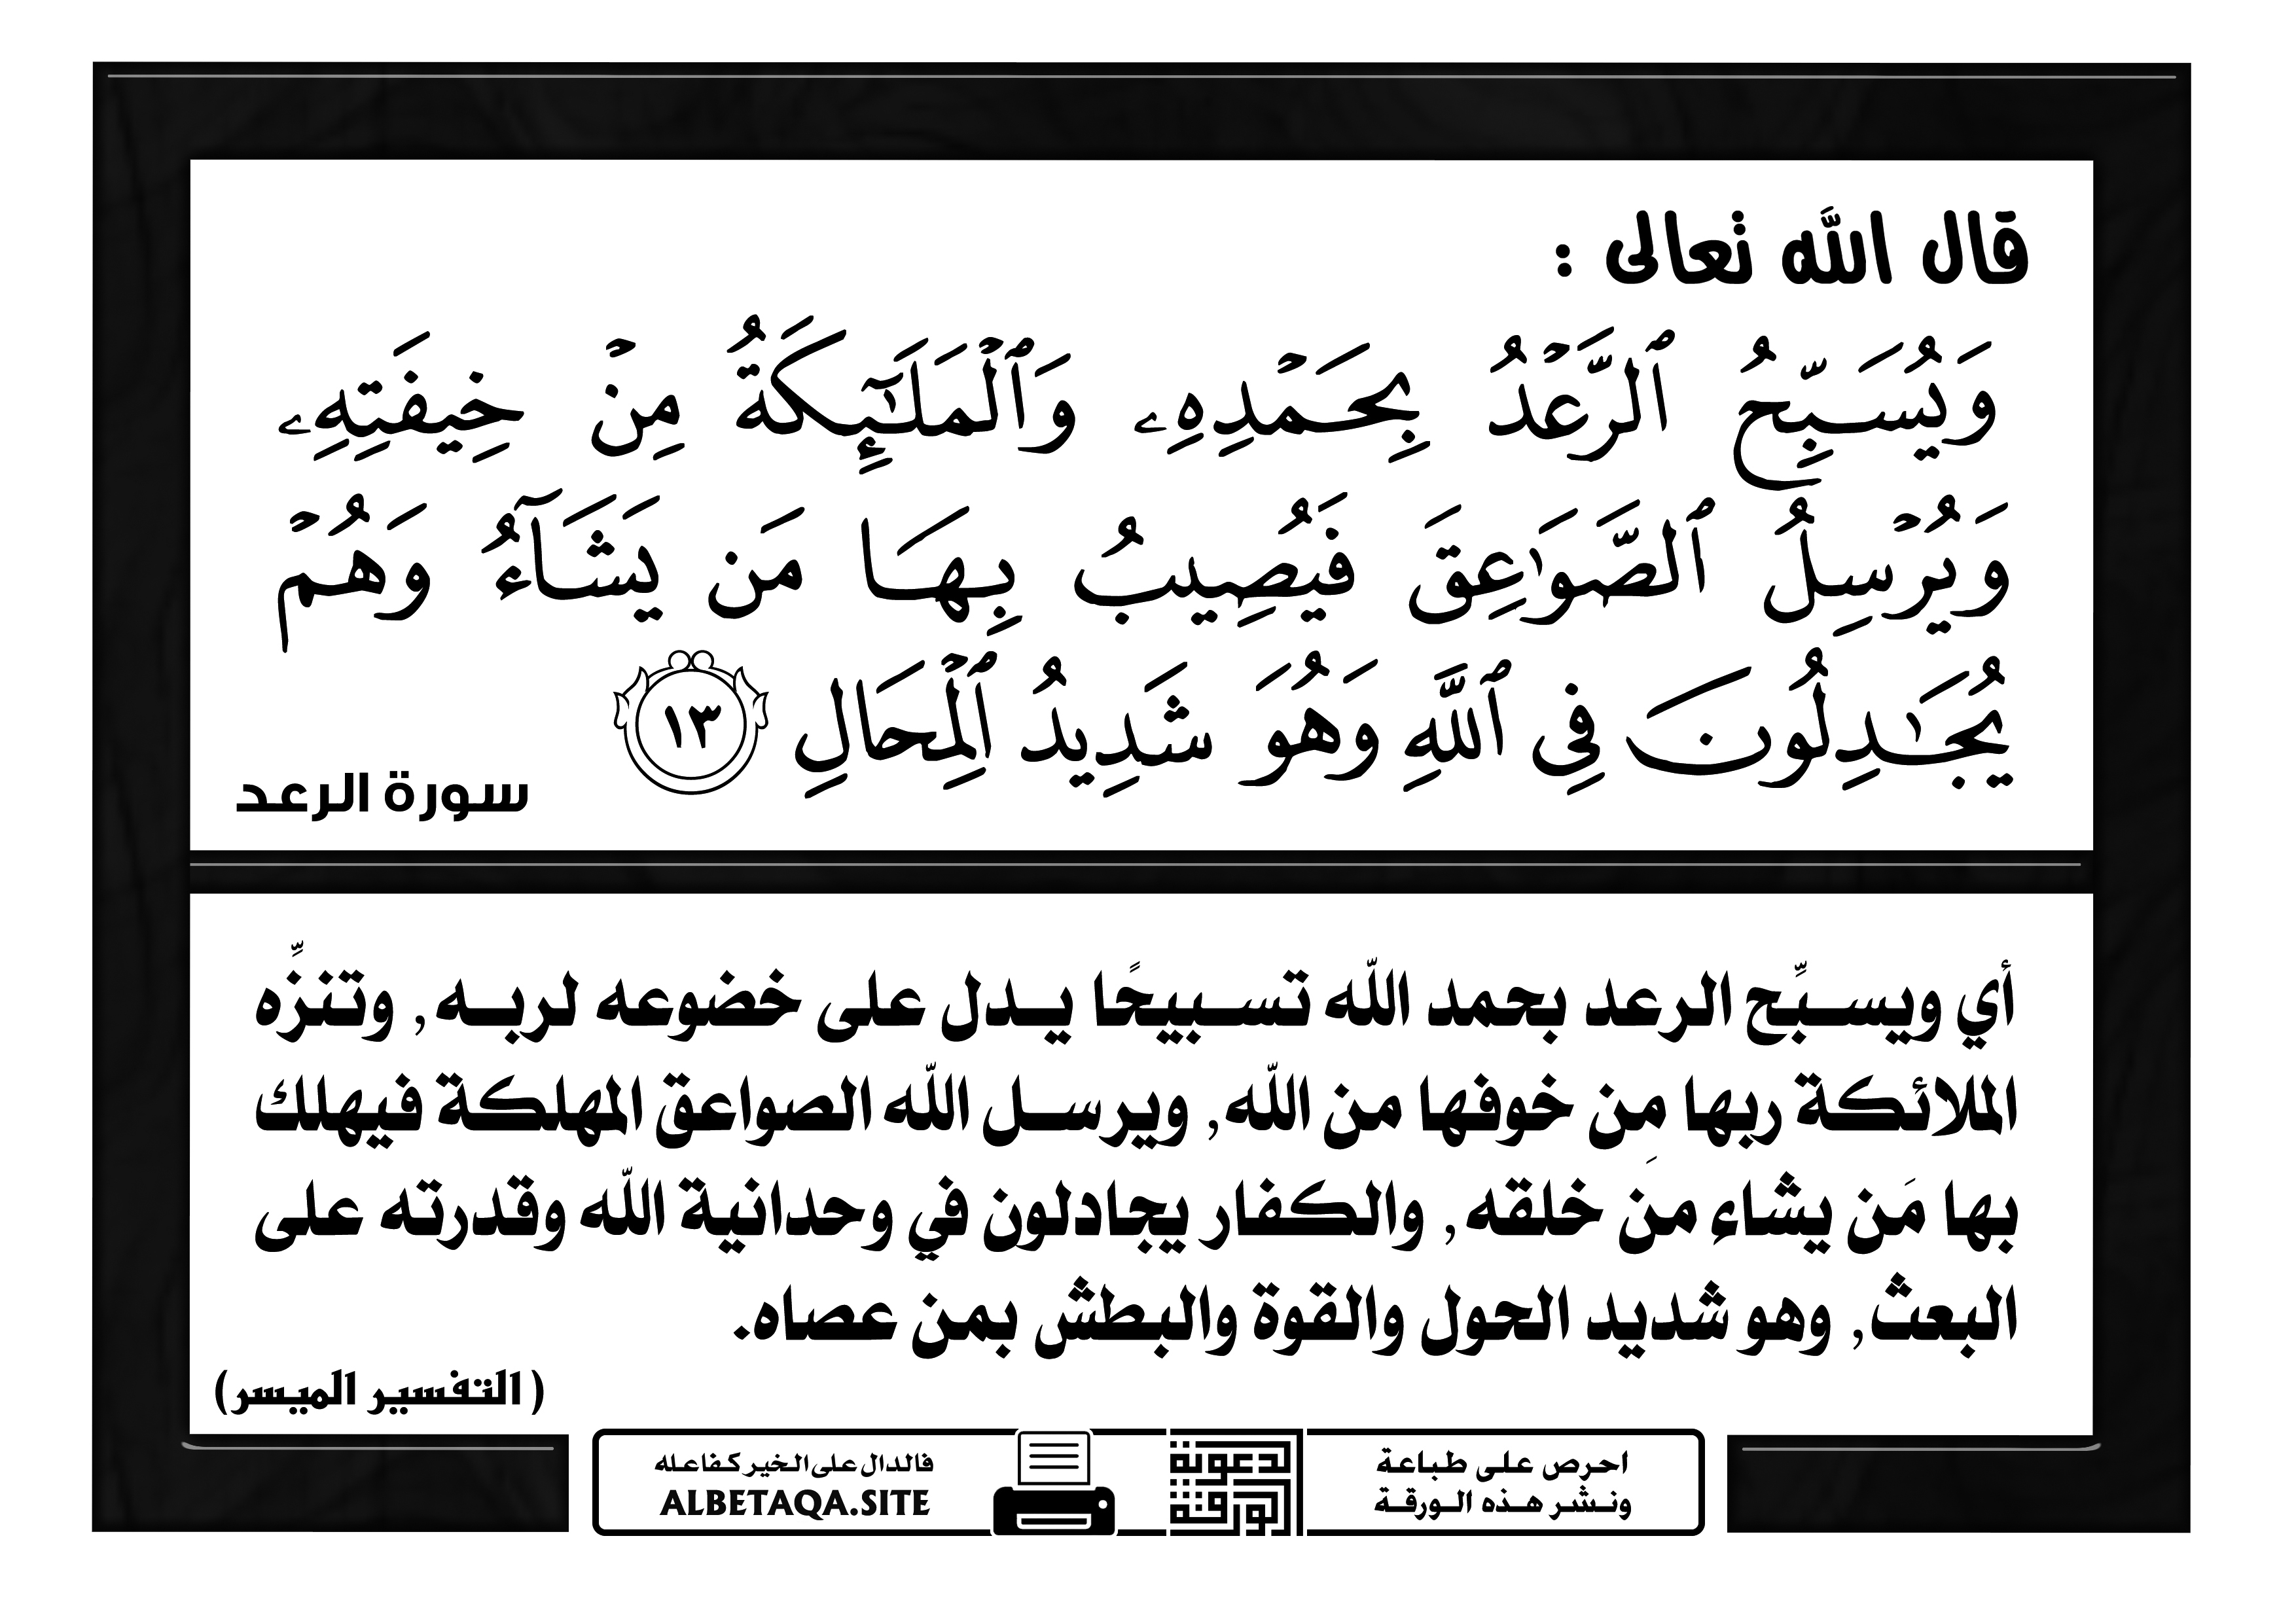 قال الله تعالى :
وَيُسَبِّحُ ٱلرَّعْدُ بِحَمْدِهِۦ وَٱلْمَلَٰٓئِكَةُ مِنْ خِيفَتِهِۦ
وَيُرْسِلُ ٱلصَّوَٰعِقَ فَيُصِيبُ بِهَا مَن يَشَآءُ وَهُمْ
يُجَٰدِلُونَ فِي ٱللَّهِ وَهُوَ شَدِيدُ ٱلْمِحَالِ ١٣
سورة الرعد
أي ويسبِّح الرعد بحمد الله تسبيحًا يدل على خضوعه لربه, وتنزِّه
الملائكة ربها مِن خوفها من الله, ويرسل الله الصواعق المهلكة فيهلك
بها مَن يشاء مِنَ خلقه, والكفار يجادلون في وحدانية الله وقدرته على
البعث, وهو شديد الحول والقوة والبطش بمن عصاه.
( التفسير الميسر)
احرص على طباعة
ونشر هذه الورقة
الورقة
الدعوية
فالدال على الخير كفاعله
ALBETAQA.SITE